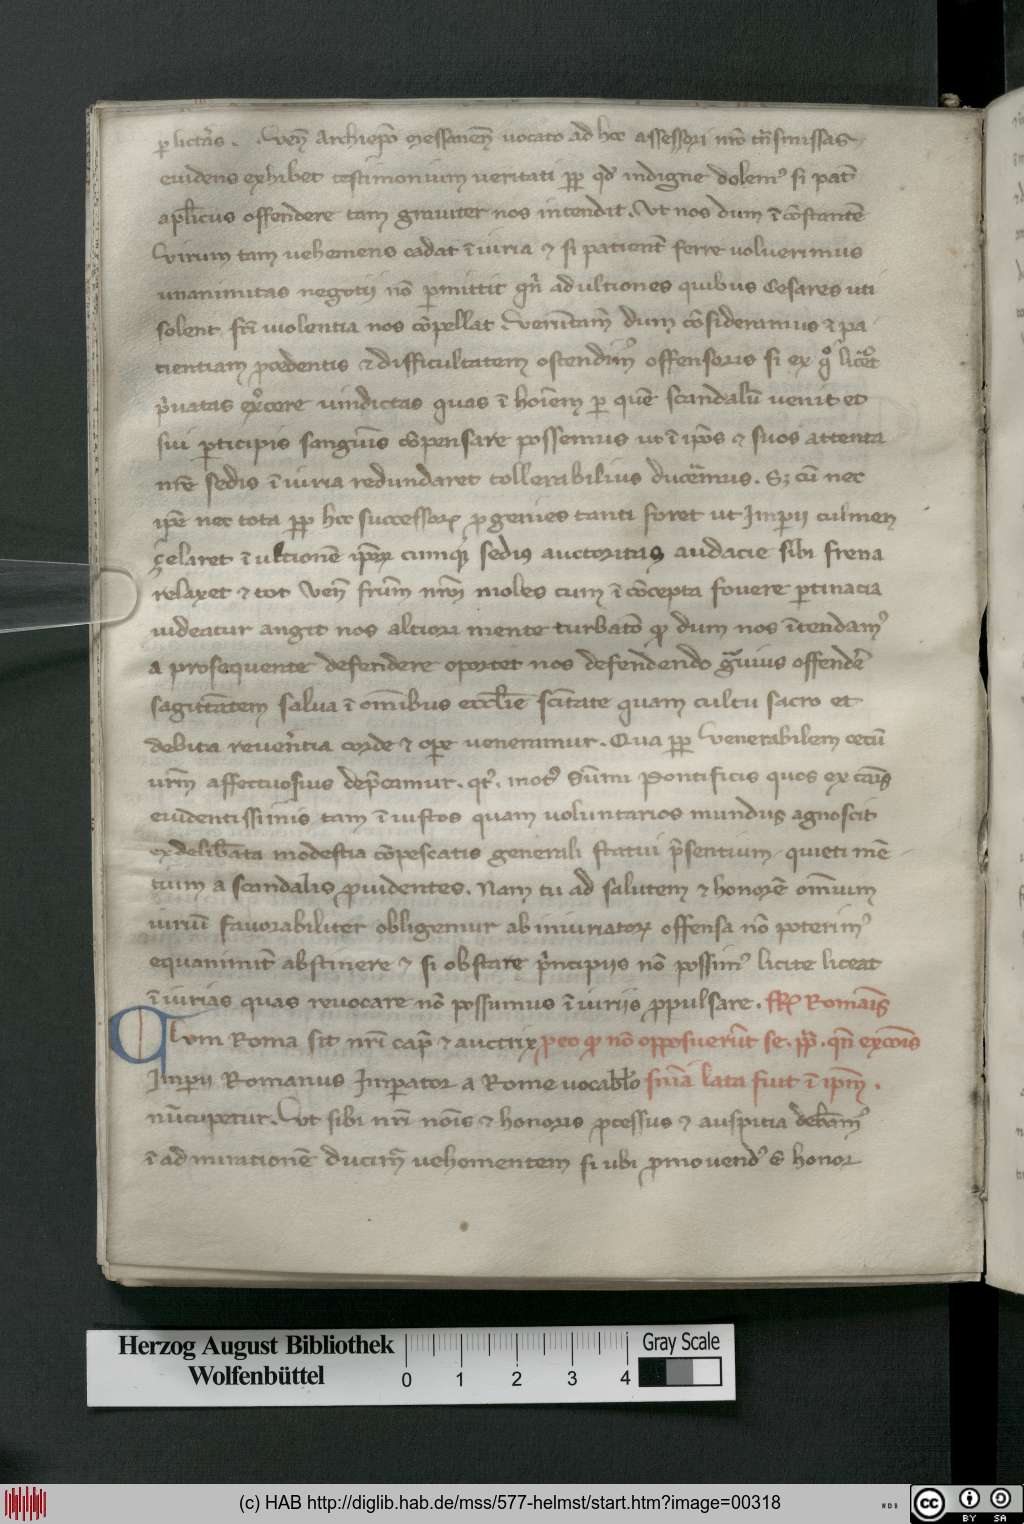 p lictas. Uen̄ Archiep̄o Messanen̄ uocato ad hec assessori nr̄o tn̄smissas
euidens exhibet testimonium ueritati pp qd' indigne dolem' si pat
ap̄licus offendere tam grauiter nos intendit. Ut nos dum ī cōstantē
Virum tam uehemens cadat īiuria & si patient ferre uoluerimus
unanimitas negotij nō pmittit qn̄ ad ultiones quibus Cesares uti
solent fcī uiolentia nos cōpellat. Verūtam̄ dum cōsideramus & pa
cientiam pcedentis & difficultatem ostendim' offensoris si ex q° licet
p̄uatas exercere uindictas quas ī hoīem p quē scandalū uenit et
sui pticipis sanguis cōpensare possemus ut ī ip̄os & suos attenta
nr̄e sedis īiuria redundaret tollerabilius ducem̄us. Sz cū nec
ip̄e nec tota pp hec successorꝝ pgenies tanti foret ut Imperij culmen
zelaret ī ultionē ip̄orꝝ cumq; sedis auctoritas audacie sibi frena
relaxet & tot Uen̄ frūm nr̄m moles cum ī cōcepta fouere ptinacia
uideatur angit nos altiori mente turbatō q dum nos ītendam'
a prosequente defendere oportet nos defendendo g̃uius offendē
sagittātem salua ī om̄ibus eccl̄ie sc̄itate quam cultu sacro et
debita reuer̄tia corde & ope ueneramur. Qua pp Venerabilem cetū
ur̄m affectuosius dep̄camur. qt'. mot' Sūmi Pontificis quos ex cāis
euidentissimis tam ī iustos quam uoluntarios mundus agnoscit
ex delib̄ata modestia cōpescatis generali statui p̄sentium quieti mē
tium a scandalis puidentes. Nam tu ad salutem & honorē omnium
uirium fauorabiliter obligemur ab iniuriatorꝝ offensa nō poterim'
equanimit̄ abstinere & si obstare p̄ncipijs nō possim' licite liceat
īiurias quas reuocare nō possumus īiurijs ppulsare. FR̄. Romanis
Cum Roma sit nr̄i cap̄ & auctrix peo q nō opposuer̄ut se. pp. qn̄ excōis
Imperij Romanus Imperator a Rome uocab̄lo sn̄ia lata fuit ī ip̄m.
nūcupetur. Ut sibi nr̄i nōis & honoris pcessus & auspitia debeam'
ī admirationē ducim̄ uehementem si ubi pmouend' ē honor
Herzog August Bibliothek
Wolfenbüttel
0 1 2 3 4
Gray Scale
(c) HAB http://diglib.hab.de/mss/577-helmst/start.htm?image=00318
WDB
cc BY SA